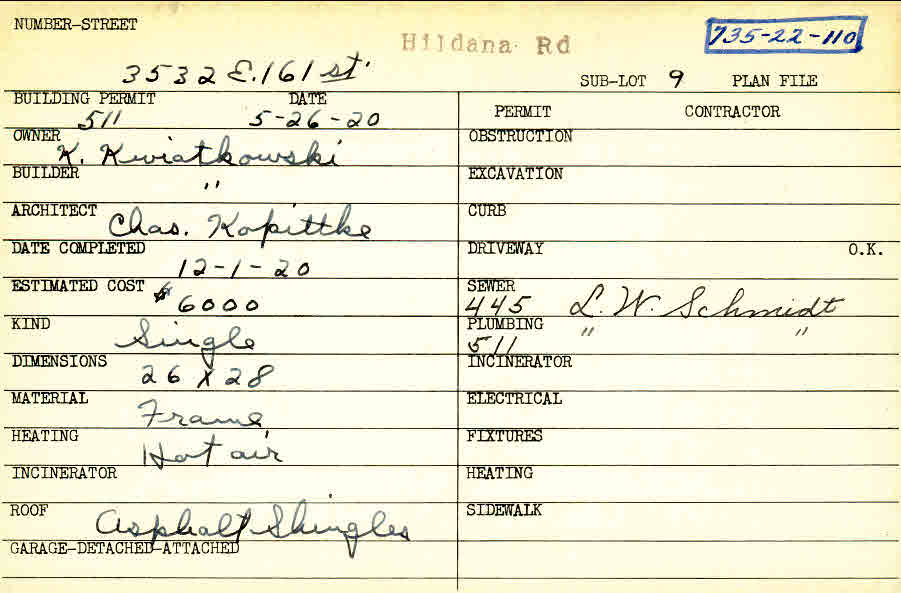 NUMBER-STREET
Hildana Rd
735-22-110
3532 E. 161 st.
SUB-LOT 9 PLAN FILE
BUILDING PERMIT DATE
511 5-26-20
PERMIT CONTRACTOR
OWNER
K. Kwiatkowski
OBSTRUCTION
BUILDER
"
EXCAVATION
ARCHITECT
Chas. Kopittke
CURB
DATE COMPLETED
12-1-20
DRIVEWAY O.K.
ESTIMATED COST $
6000
SEWER
445 L. W. Schmidt
KIND
Single
PLUMBING " "
511
DIMENSIONS
26 X 28
INCINERATOR
MATERIAL
Frame
ELECTRICAL
HEATING
Hot air
FIXTURES
INCINERATOR
HEATING
ROOF
Asphalt Shingles
SIDEWALK
GARAGE-DETACHED-ATTACHED